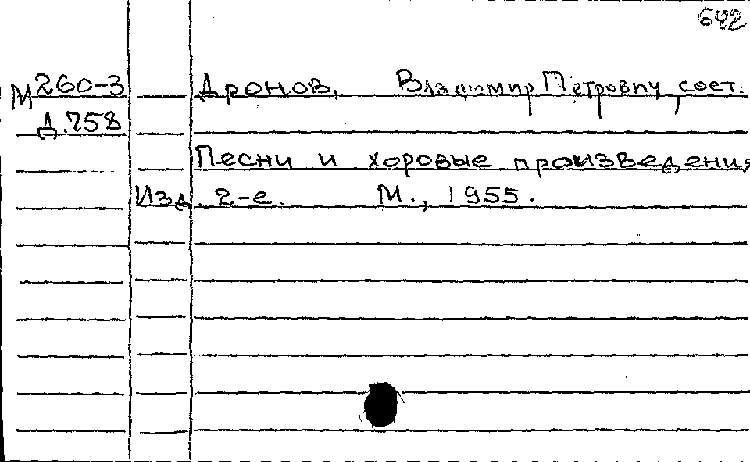 642
М 260-3 Дронов, Владимир Петрович, сост.
Д.758
Песни и хоровые произведения
Изд. 2-е. М., 1955.